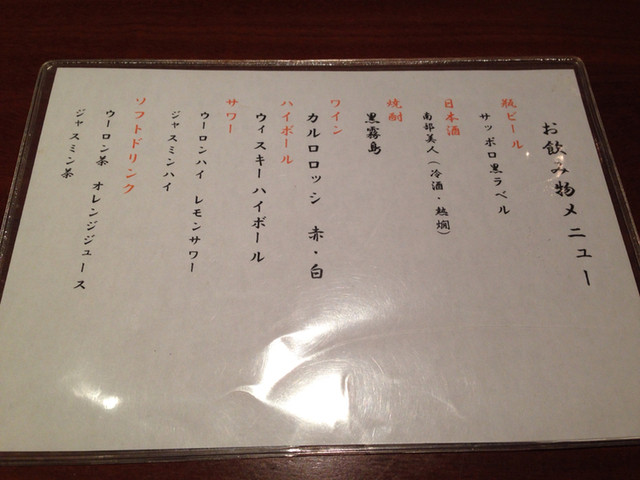 お飲み物メニュー
瓶ビール
サッポロ黒ラベル
日本酒
南部美人（冷酒・熱燗）
焼酎
黒霧島
ワイン
カルロロッシ 赤・白
ハイボール
ウィスキーハイボール
サワー
ウーロンハイ レモンサワー
ジャスミンハイ
ソフトドリンク
ウーロン茶 オレンジジュース
ジャスミン茶